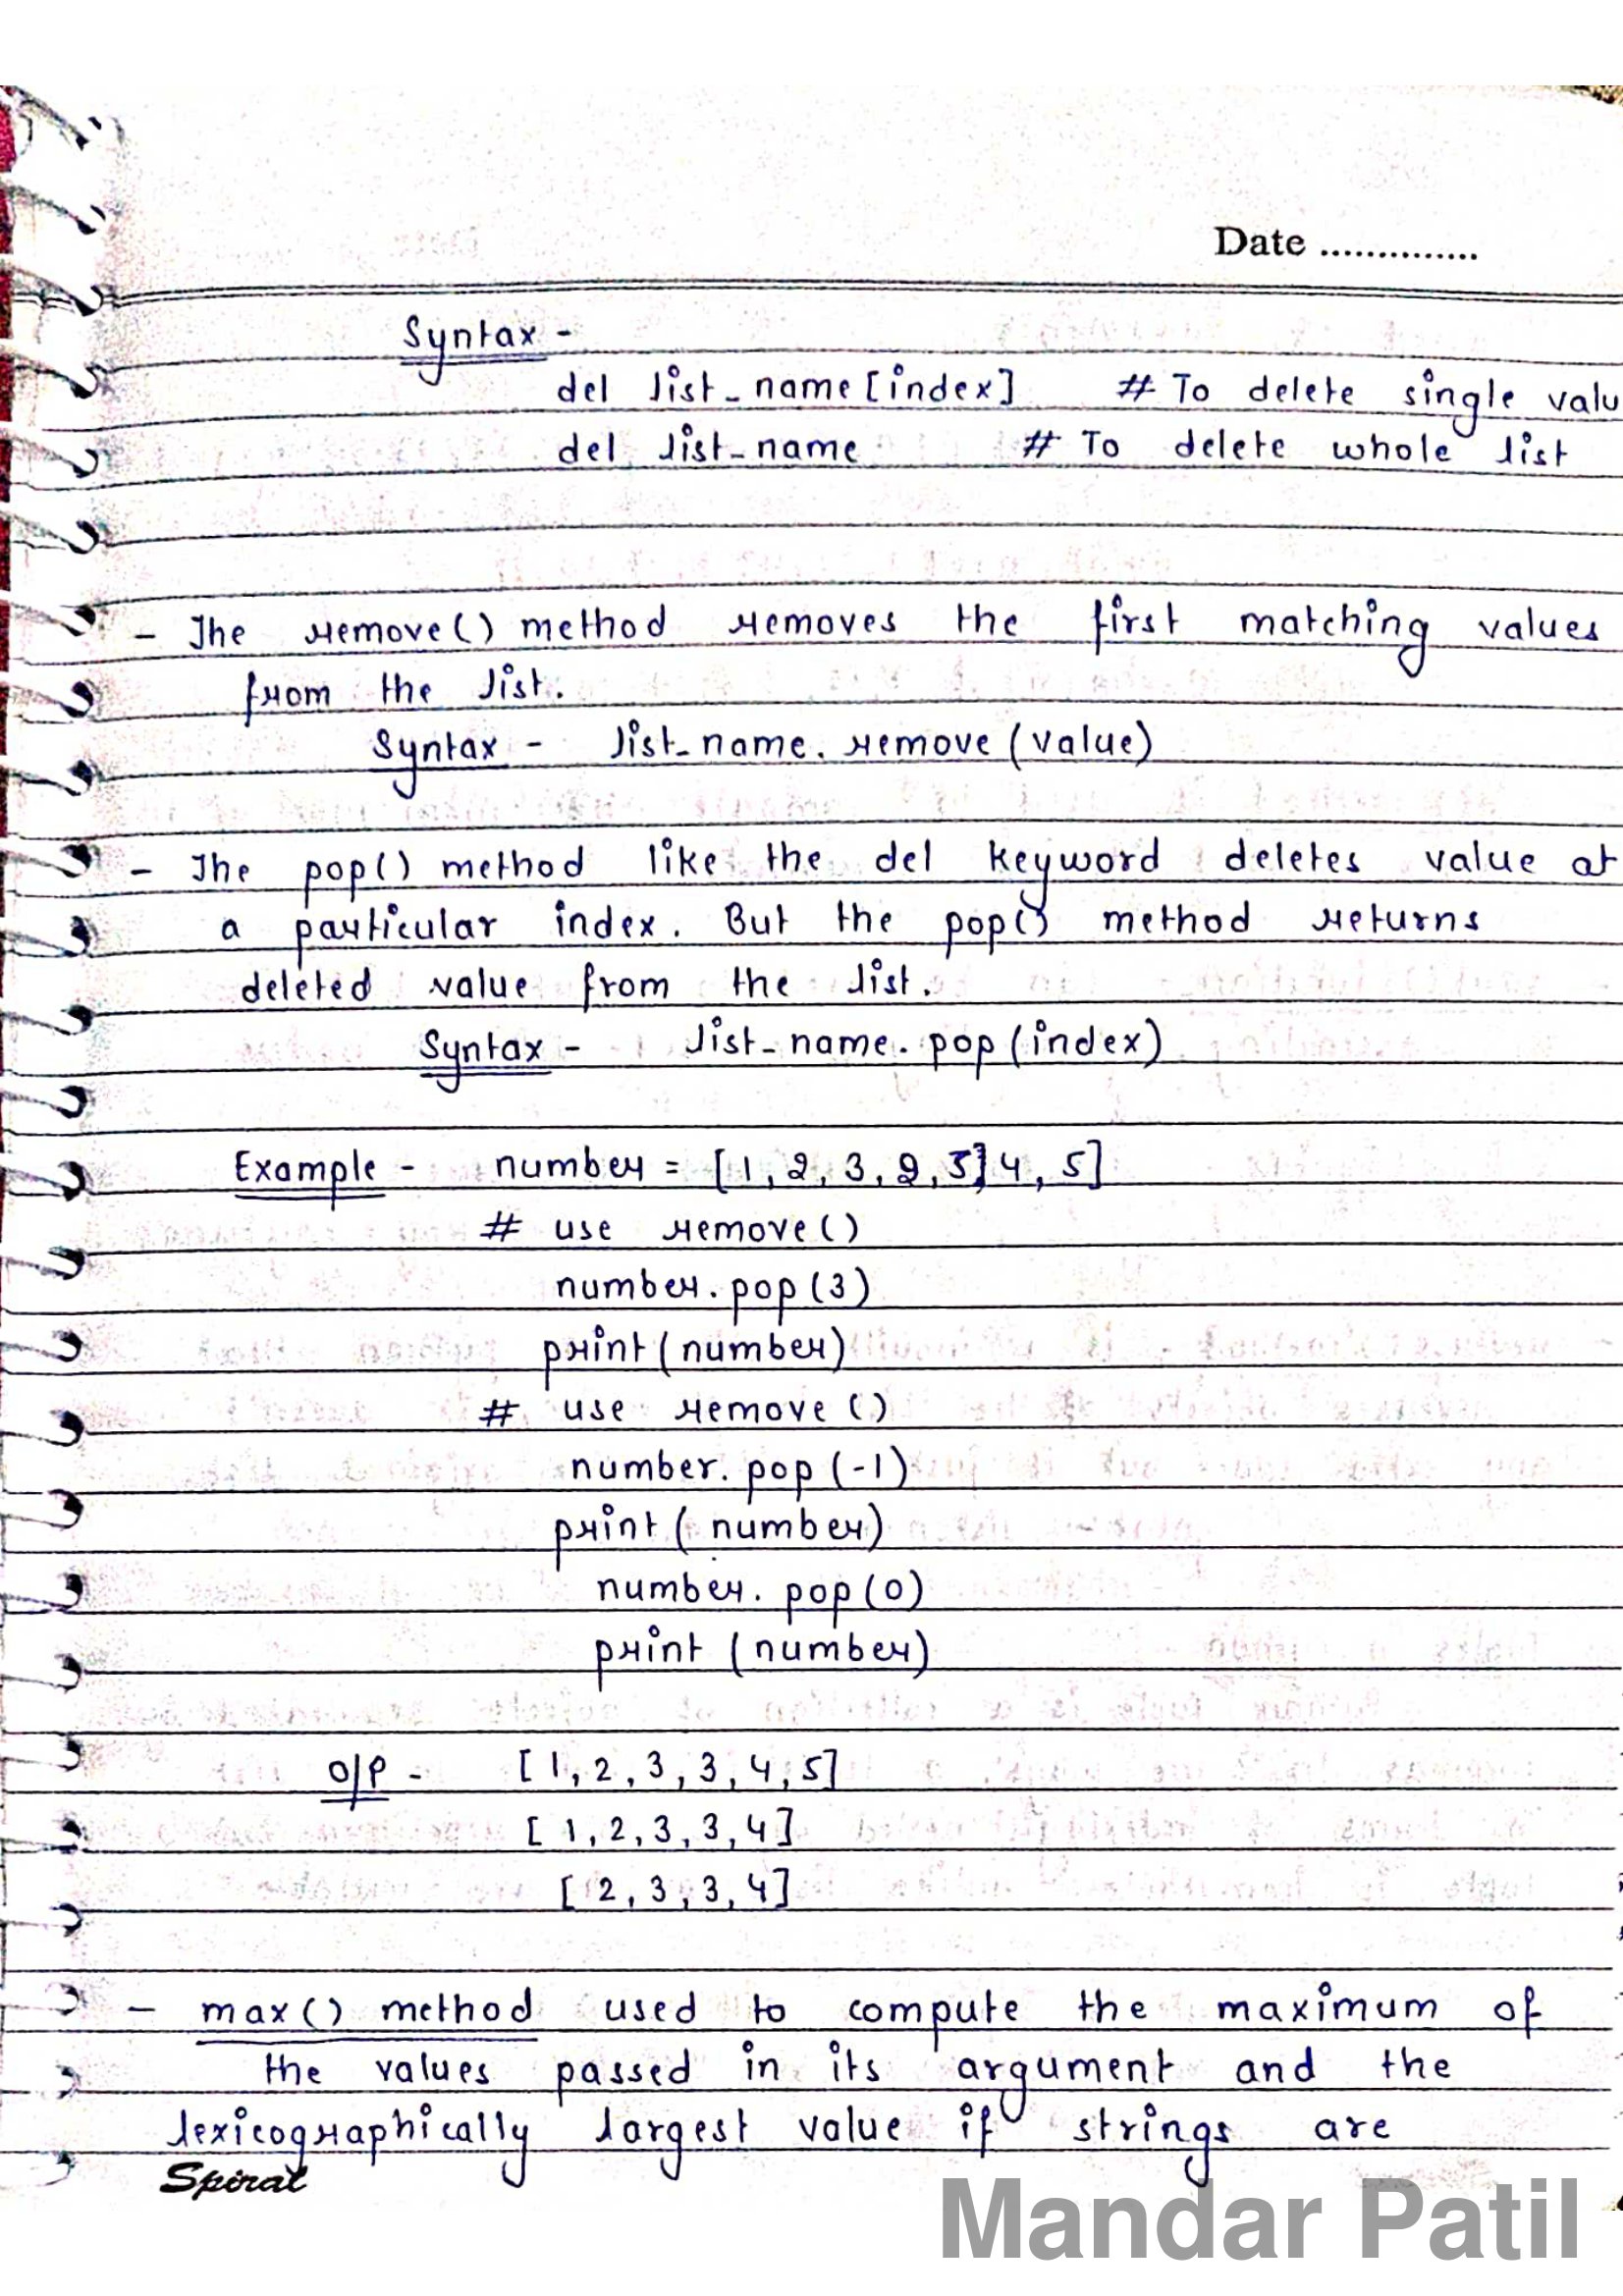 Date ..............
Syntax -
del list_name[index] # To delete single valu
del list_name # To delete whole list
- The remove() method removes the first matching values
from the list.
Syntax - list_name.remove(value)
- The pop() method like the del keyword deletes value at
a particular index. But the pop() method returns
deleted value from the list.
Syntax - list_name.pop(index)
Example - number = [1, 2, 3, 2, 3] 4, 5]
# use remove()
number.pop(3)
print(number)
# use remove()
number.pop(-1)
print(number)
number.pop(0)
print(number)
O/P - [1, 2, 3, 3, 4, 5]
[1, 2, 3, 3, 4]
[2, 3, 3, 4]
- max() method used to compute the maximum of
the values passed in its argument and the
lexicographically largest value if strings are
Spiral
Mandar Patil